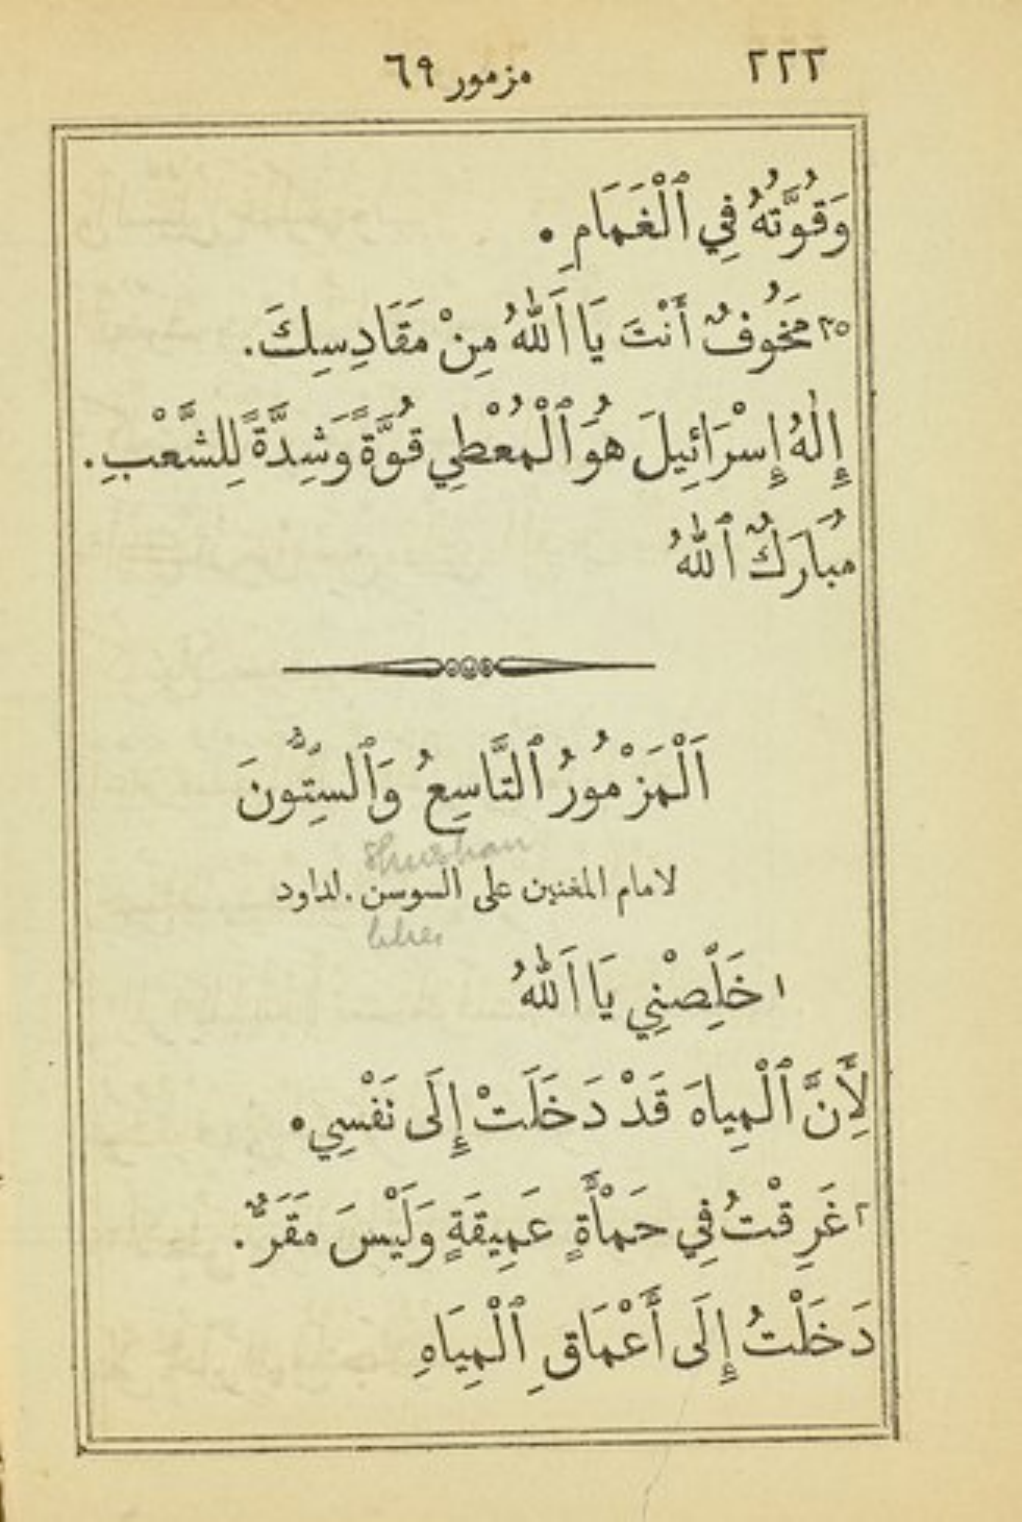 مزمور ٦٩ ٢٢٣
وَقُوَّتُهُ فِي ٱلْغَمَامِ.
٣٥ مَخُوفٌ أَنْتَ يَا اَللّٰهُ مِنْ مَقَادِسِكَ.
إِلٰهُ إِسْرَائِيلَ هُوَ ٱلْمُعْطِي قُوَّةً وَشِدَّةً لِلشَّعْبِ.
مُبَارَكٌ ٱللّٰهُ
اَلْمَزْمُورُ ٱلتَّاسِعُ وَٱلسِّتُّونَ
Shushan
لامام المغنين على السوسن. لداود
lilies
١ خَلِّصْنِي يَا اَللّٰهُ
لِأَنَّ ٱلْمِيَاهَ قَدْ دَخَلَتْ إِلَى نَفْسِي.
٢ غَرِقْتُ فِي حَمْأَةٍ عَمِيقَةٍ وَلَيْسَ مَقَرٌّ.
دَخَلْتُ إِلَى أَعْمَاقِ ٱلْمِيَاهِ